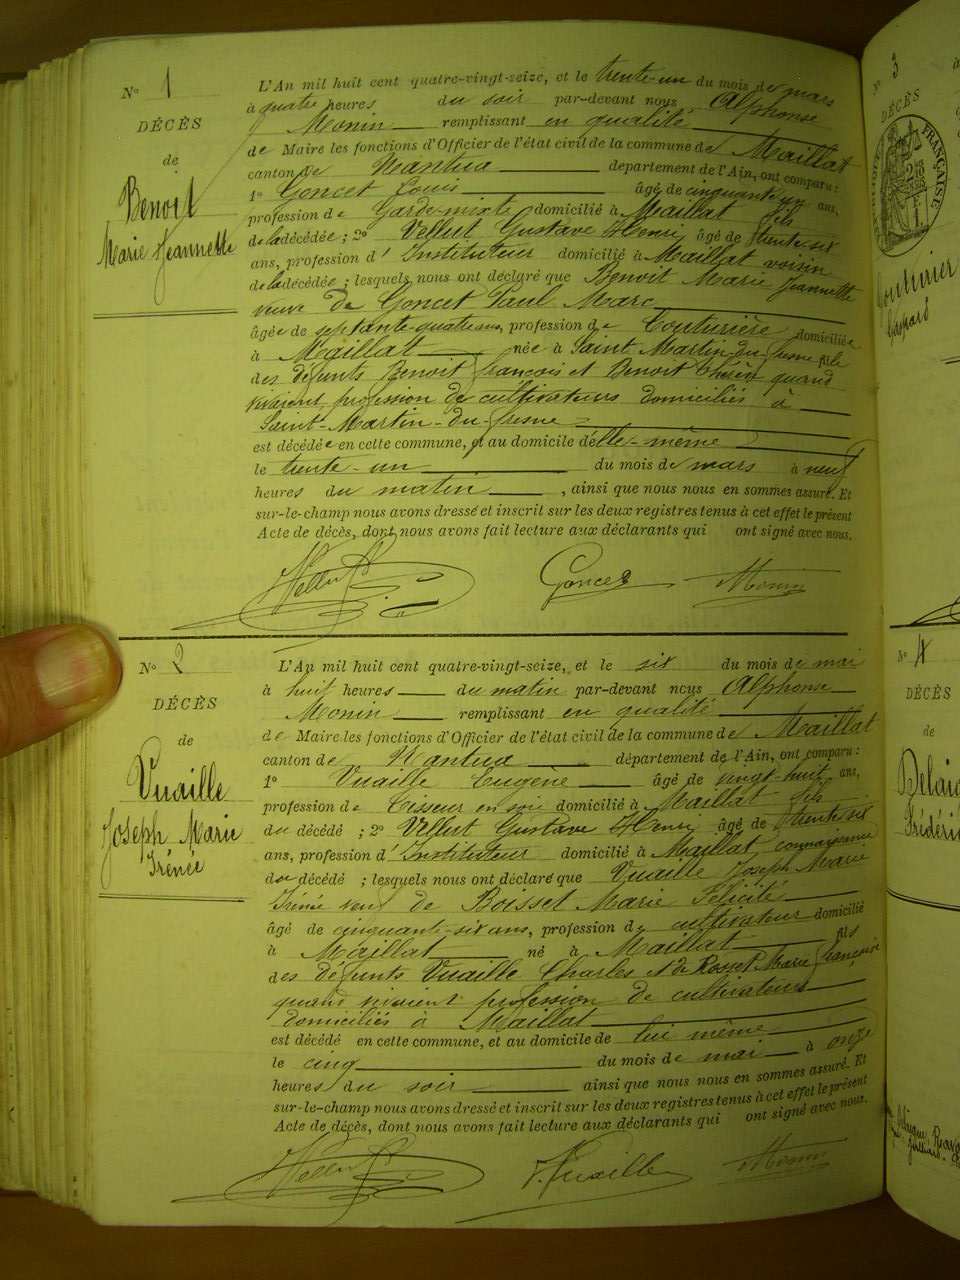 N° 1
DÉCÈS
de
Benoit
Marie Jeannette
L'An mil huit cent quatre-vingt-seize, et le trente-un du mois de mars
à quatre heures du soir par-devant nous Alphonse
Monin remplissant en qualité
de Maire les fonctions d'Officier de l'état civil de la commune de Maillat
canton de Nantua département de l'Ain, ont comparu:
1° Goncet Louis âgé de cinquante un ans,
profession de Garde-mixte domicilié à Maillat fils
de la décédée ; 2° Vellut Gustave Henri âgé de trente six
ans, profession d' Instituteur domicilié à Maillat voisin
de la décédée ; lesquels nous ont déclaré que Benoit Marie Jeannette
veuve de Goncet Paul Marc
âgée de septante-quatre ans, profession de Couturière domiciliée
à Maillat née à Saint Martin-du-fresne fille
des défunts Benoit françois et Benoit quand
vivaient profession de cultivateurs domiciliés à
Saint-Martin-du-fresne
est décédée en cette commune, et au domicile d'elle-même
le trente-un du mois de mars à neuf
heures du matin , ainsi que nous nous en sommes assuré. Et
sur-le-champ nous avons dressé et inscrit sur les deux registres tenus à cet effet le présent
Acte de décès, dont nous avons fait lecture aux déclarants qui ont signé avec nous.
Vellut Goncet Monin
N° 2
DÉCÈS
de
Vuaille
Joseph Marie
Irénée
L'An mil huit cent quatre-vingt-seize, et le six du mois de mai
à huit heures du matin par-devant nous Alphonse
Monin remplissant en qualité
de Maire les fonctions d'Officier de l'état civil de la commune de Maillat
canton de Nantua département de l'Ain, ont comparu:
1° Vuaille Eugène âgé de vingt-huit ans,
profession de Tisseur en soie domicilié à Maillat fils
du décédé ; 2° Vellut Gustave Henri âgé de trente six
ans, profession d' Instituteur domicilié à Maillat connaissance
du décédé ; lesquels nous ont déclaré que Vuaille Joseph Marie
Irénée veuf de Boisset Marie Félicité
âgé de cinquante-six ans, profession de cultivateur domicilié
à Maillat né à Maillat fils
des défunts Vuaille Charles et de Rosset Marie françoise
quand vivaient profession de cultivateurs
domiciliés à Maillat
est décédé en cette commune, et au domicile de lui même
le cinq du mois de mai à onze
heures du soir ainsi que nous nous en sommes assuré. Et
sur-le-champ nous avons dressé et inscrit sur les deux registres tenus à cet effet le présent
Acte de décès, dont nous avons fait lecture aux déclarants qui ont signé avec nous.
Vellut Vuaille Monin
N° 3
DÉCÈS
FRANÇAISE
Couturier
N° 4
DÉCÈS
de